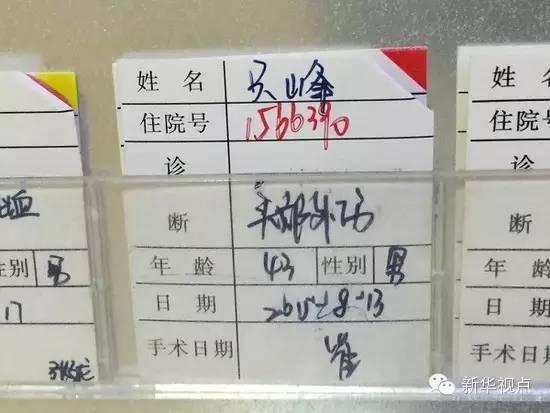 姓名 吴山峰
住院号 1566390
诊
断 头部外伤
年龄 43 性别 男
日期 2015-8-13
手术日期 崔
性别 男
17
姓名
住院号
诊
断
年龄
日期
手术日
新华视点